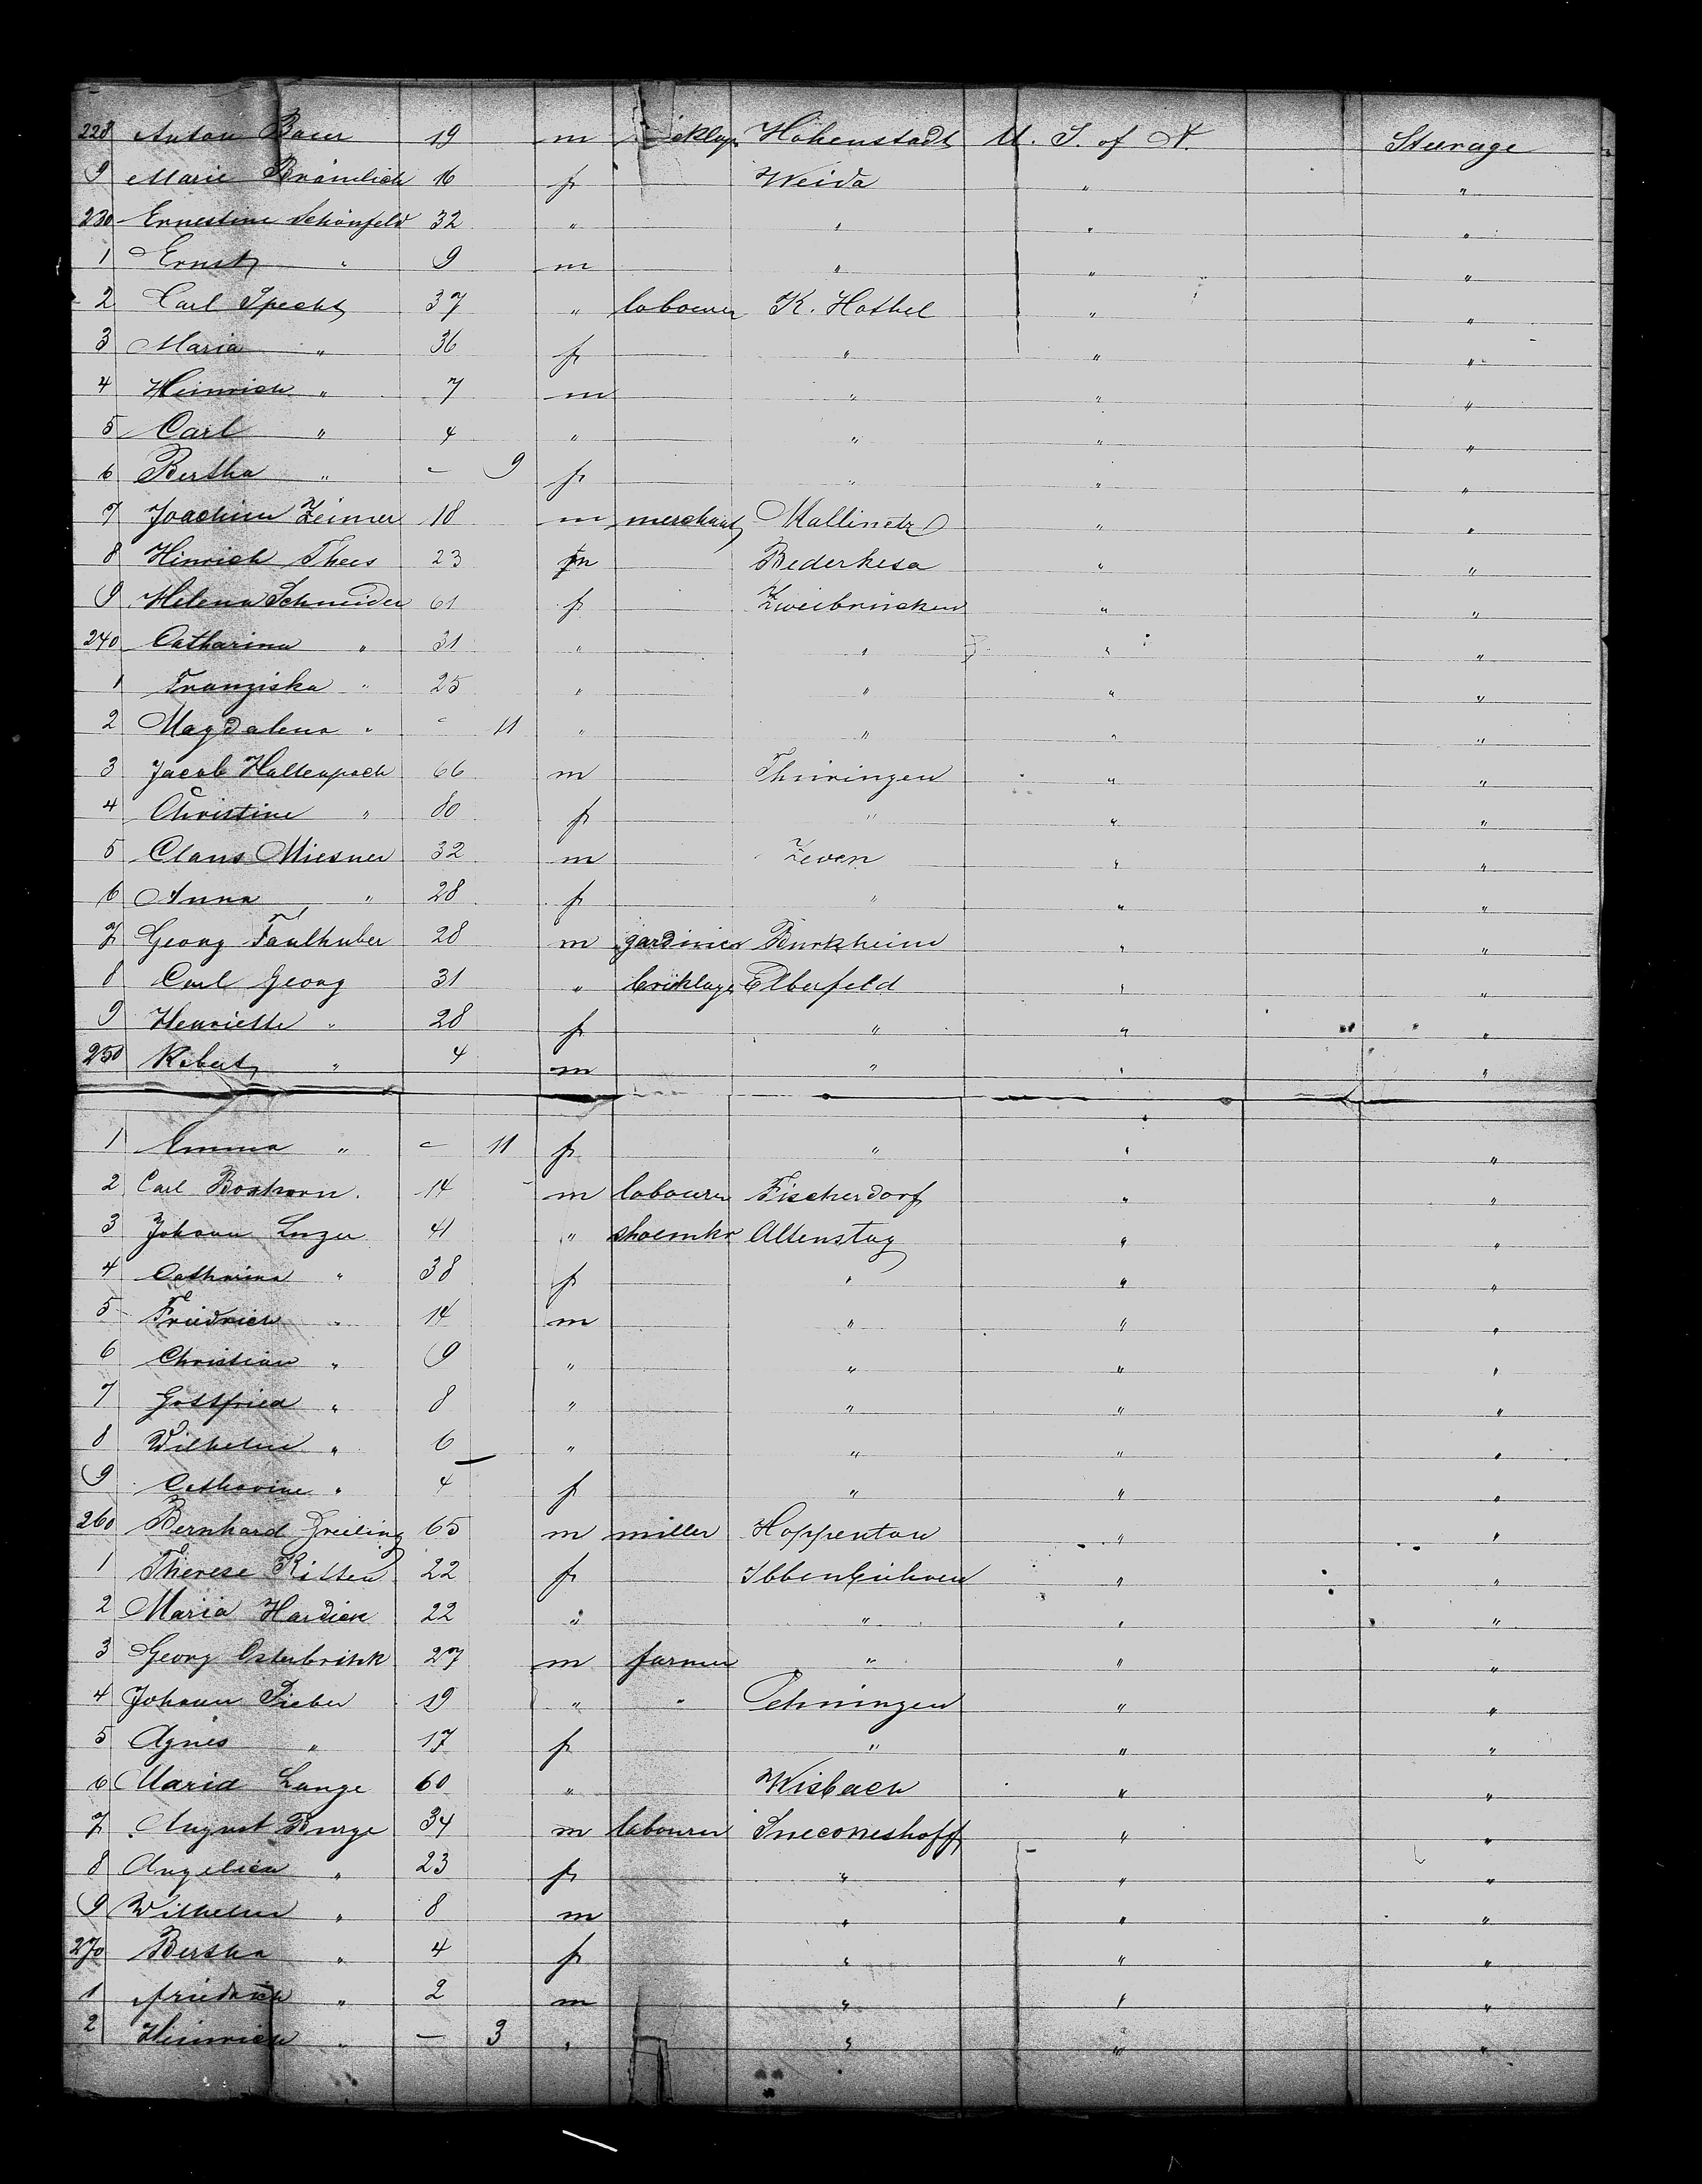 228 Anton Baur 19 m Hohenstadt U. S. of A. Steerage
9 Marie Brömlich 16 f Weida " "
230 Ernestine Schönfeld 32 " " " "
1 Ernst " 9 m " " "
2 Carl Specht 37 " labourer K. Hathel " "
3 Maria " 36 f " " "
4 Heinrich " 7 m " " "
5 Carl " 4 " " " "
6 Bertha " - 9 f " " "
7 Joachim Zeimer 18 m merchant Mallinetz " "
8 Hinrich Thees 23 m Bederkesa " "
9 Helena Schneider 61 f Zweibrücken " "
240 Catharina " 31 " " " "
1 Franziska " 25 " " " "
2 Magdalena " - 11 " " " "
3 Jacob Haltenpoch 66 m Thüringen " "
4 Christine " 60 f " " "
5 Claus Miesner 32 m Zeven " "
6 Anna " 28 f " " "
7 Georg Faulhuber 28 m gardinier Burkheim " "
8 Carl Georg 31 " bricklayr Elberfeld " "
9 Henriette " 28 f " " "
250 Robert " 4 m " " "
1 Emma " - 11 f " " "
2 Carl Boxhorn 14 m labourer Fischerdorf " "
3 Johann Luzer 41 " shoemkr Altenstag " "
4 Catharina " 38 f " " "
5 Friedrich " 14 m " " "
6 Christian " 9 " " " "
7 Gottfried " 8 " " " "
8 Wilhelm " 6 " " " "
9 Catharine " 4 f " " "
260 Bernhard Dreiling 65 m miller Hoppentau " "
1 Therese Ritter 22 f Ibbenbühren " "
2 Maria Hardick 22 " " " "
3 Georg Osterbrink 27 m farmer " " "
4 Johann Bieber 19 " " Oehningen " "
5 Agnes " 17 f " " "
6 Maria Lange 60 " Wisbach " "
7 August Burge 34 m labourer " "
8 Angelica " 23 f " " "
9 Wilhelm " 8 m " " "
270 Bertha " 4 f " " "
1 Friedrich " 2 m " " "
2 Heinrich " - 3 " " " "